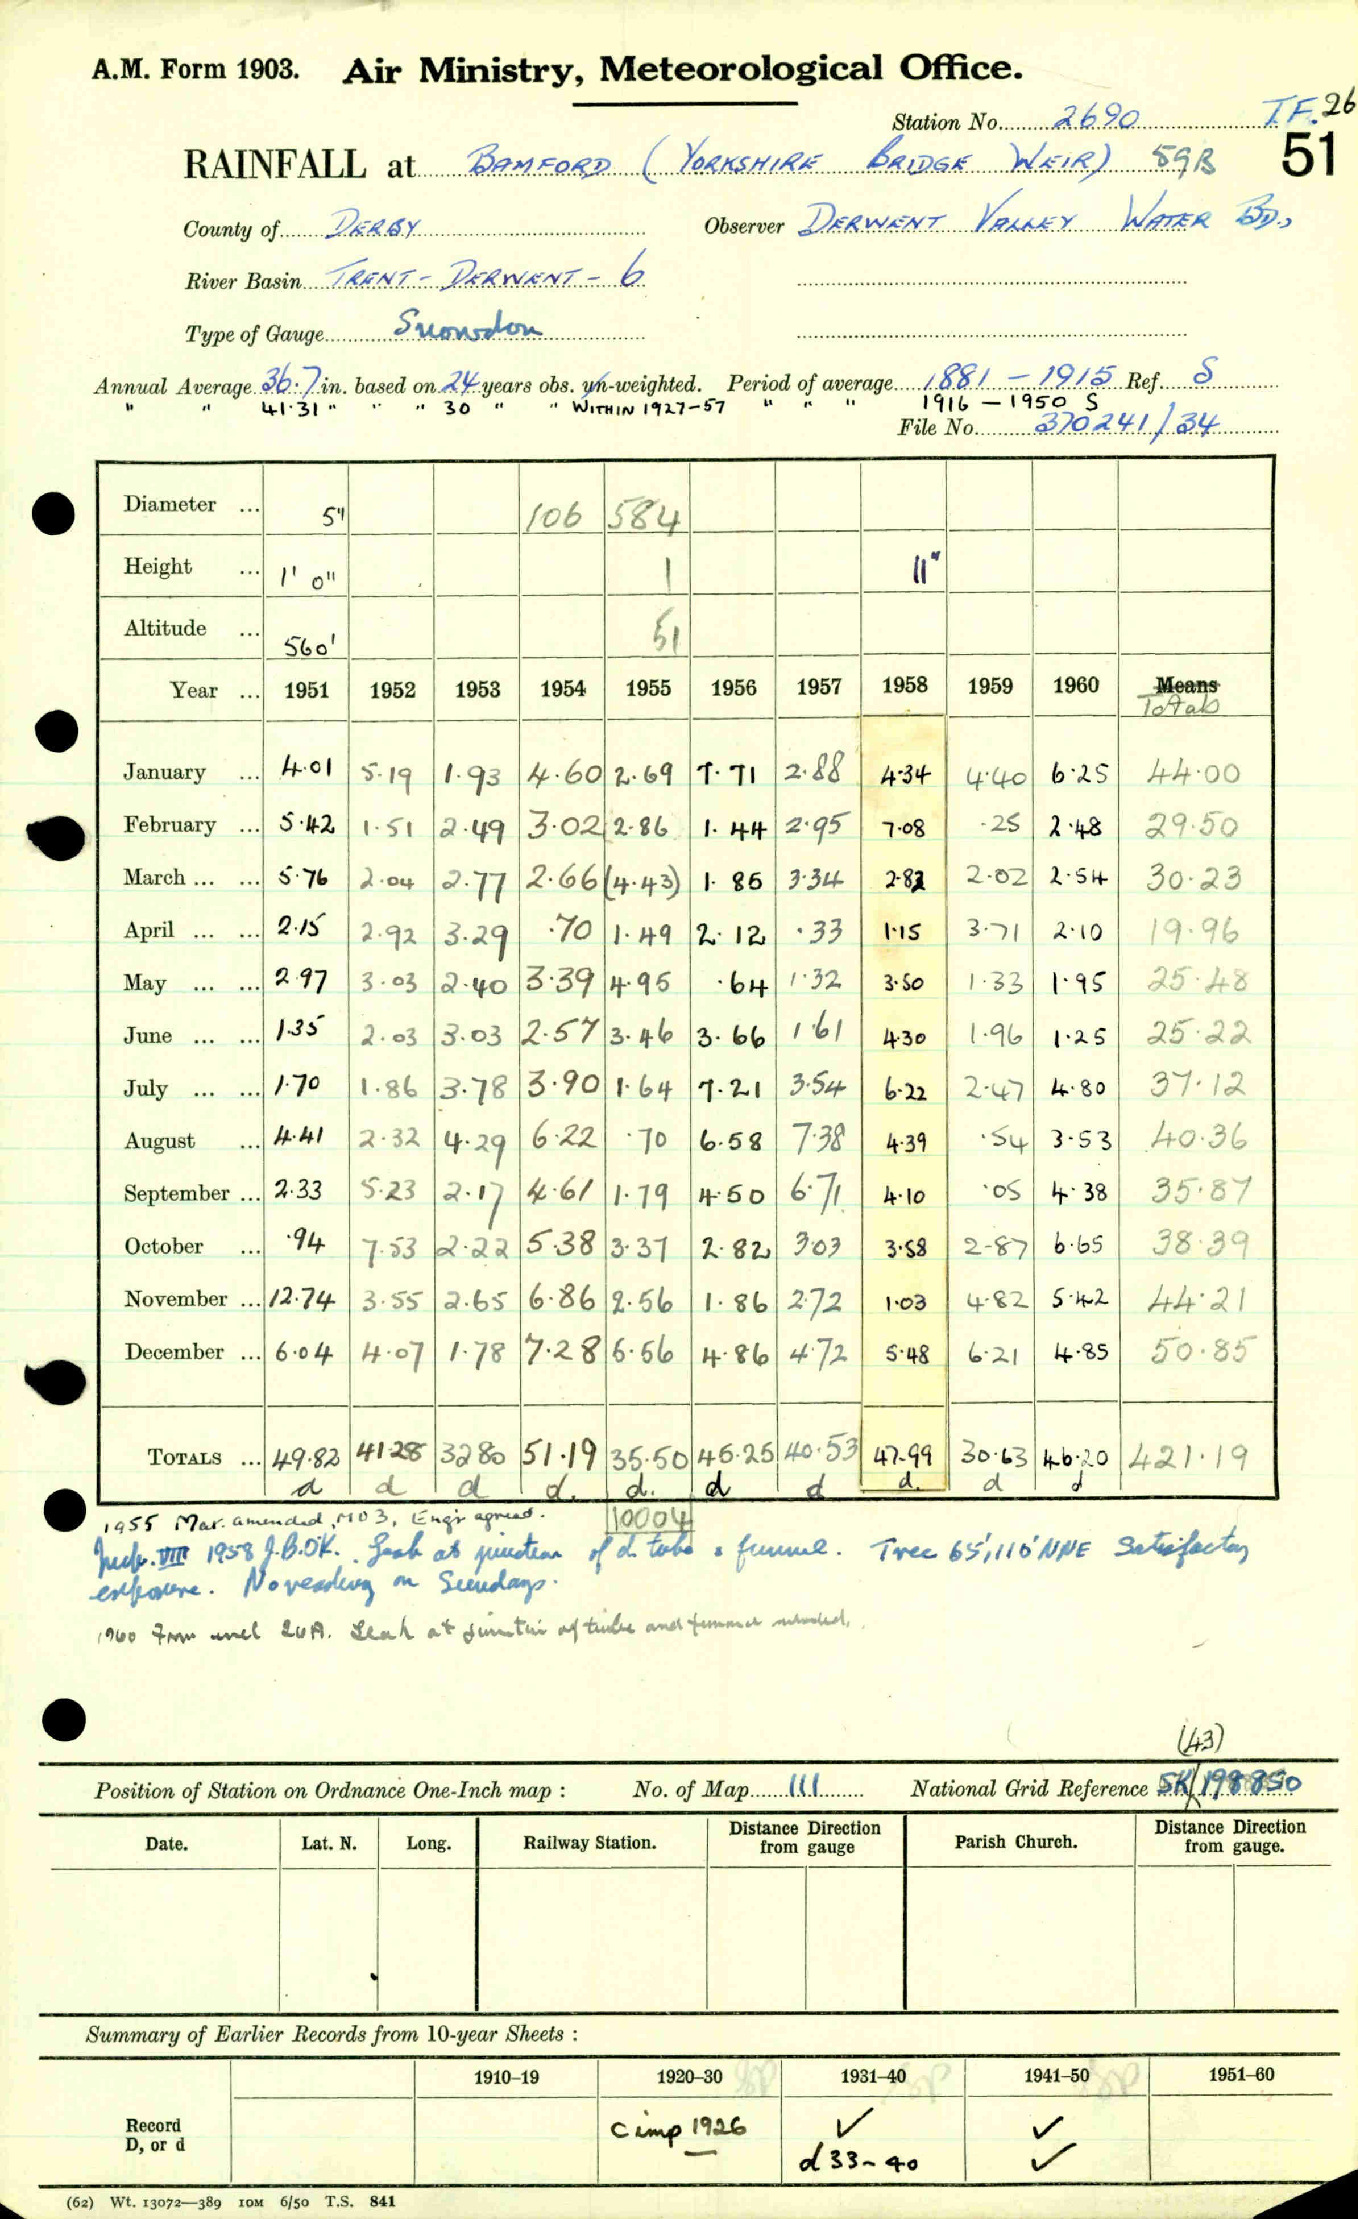 A.M. Form 1903. Air Ministry, Meteorological Office.
Station No. 2690 I.F. 26
RAINFALL at BAMFORD (YORKSHIRE BRIDGE WEIR) 59B 51
County of DERBY Observer DERWENT VALLEY WATER BD.,
River Basin TRENT - DERWENT - 6
Type of Gauge Snowdon
Annual Average 36.7 in. based on 24 years obs. un-weighted. Period of average 1881 - 1915 Ref. S
" " 41.31 " " " 30 " " WITHIN 1927-57 " " " 1916 - 1950 S
File No. 370241/34
Diameter ... 5" 106 584
Height ... 1' 0" 1 11"
Altitude ... 560' 51
Year ... 1951 1952 1953 1954 1955 1956 1957 1958 1959 1960 Means
Totals
January ... 4.01 5.19 1.93 4.60 2.69 7.71 2.88 4.34 4.40 6.25 44.00
February ... 5.42 1.51 2.49 3.02 2.86 1.44 2.95 7.08 .25 2.48 29.50
March ... ... 5.76 2.04 2.77 2.66 (4.43) 1.85 3.34 2.82 2.02 2.54 30.23
April ... ... 2.15 2.92 3.29 .70 1.49 2.12 .33 1.15 3.71 2.10 19.96
May ... ... 2.97 3.03 2.40 3.39 4.95 .64 1.32 3.50 1.33 1.95 25.48
June ... ... 1.35 2.03 3.03 2.57 3.46 3.66 1.61 4.30 1.96 1.25 25.22
July ... ... 1.70 1.86 3.78 3.90 1.64 7.21 3.54 6.22 2.47 4.80 37.12
August ... 4.41 2.32 4.29 6.22 .70 6.58 7.38 4.39 .54 3.53 40.36
September ... 2.33 5.23 2.17 4.61 1.79 4.50 6.71 4.10 .05 4.38 35.87
October ... .94 7.53 2.22 5.38 3.37 2.82 3.03 3.58 2.87 6.65 38.39
November ... 12.74 3.55 2.65 6.86 2.56 1.86 2.72 1.03 4.82 5.42 44.21
December ... 6.04 4.07 1.78 7.28 5.56 4.86 4.72 5.48 6.21 4.85 50.85
TOTALS ... 49.82 41.28 32.80 51.19 35.50 45.25 40.53 47.99 30.63 46.20 421.19
d d d d. d. d d d. d d
1955 Mar. amended, MO3, Engr agreed. 10004
Insp. VIII 1958 J.B.O'K. Leak at junction of d. tube & funnel. Tree 65', 110' NNE Satisfactory
exposure. No reading on Sundays.
1960 Leak at junction of tube and funnel
(43)
Position of Station on Ordnance One-Inch map : No. of Map 111 National Grid Reference SK/198850
Date. Lat. N. Long. Railway Station. Distance Direction from gauge Parish Church. Distance Direction from gauge.
Summary of Earlier Records from 10-year Sheets :
1910–19 1920–30 1931–40 1941–50 1951–60
Record D, or d C imp 1926 ✓ ✓
d 33-40 ✓
(62) Wt. 13072—389 10M 6/50 T.S. 841